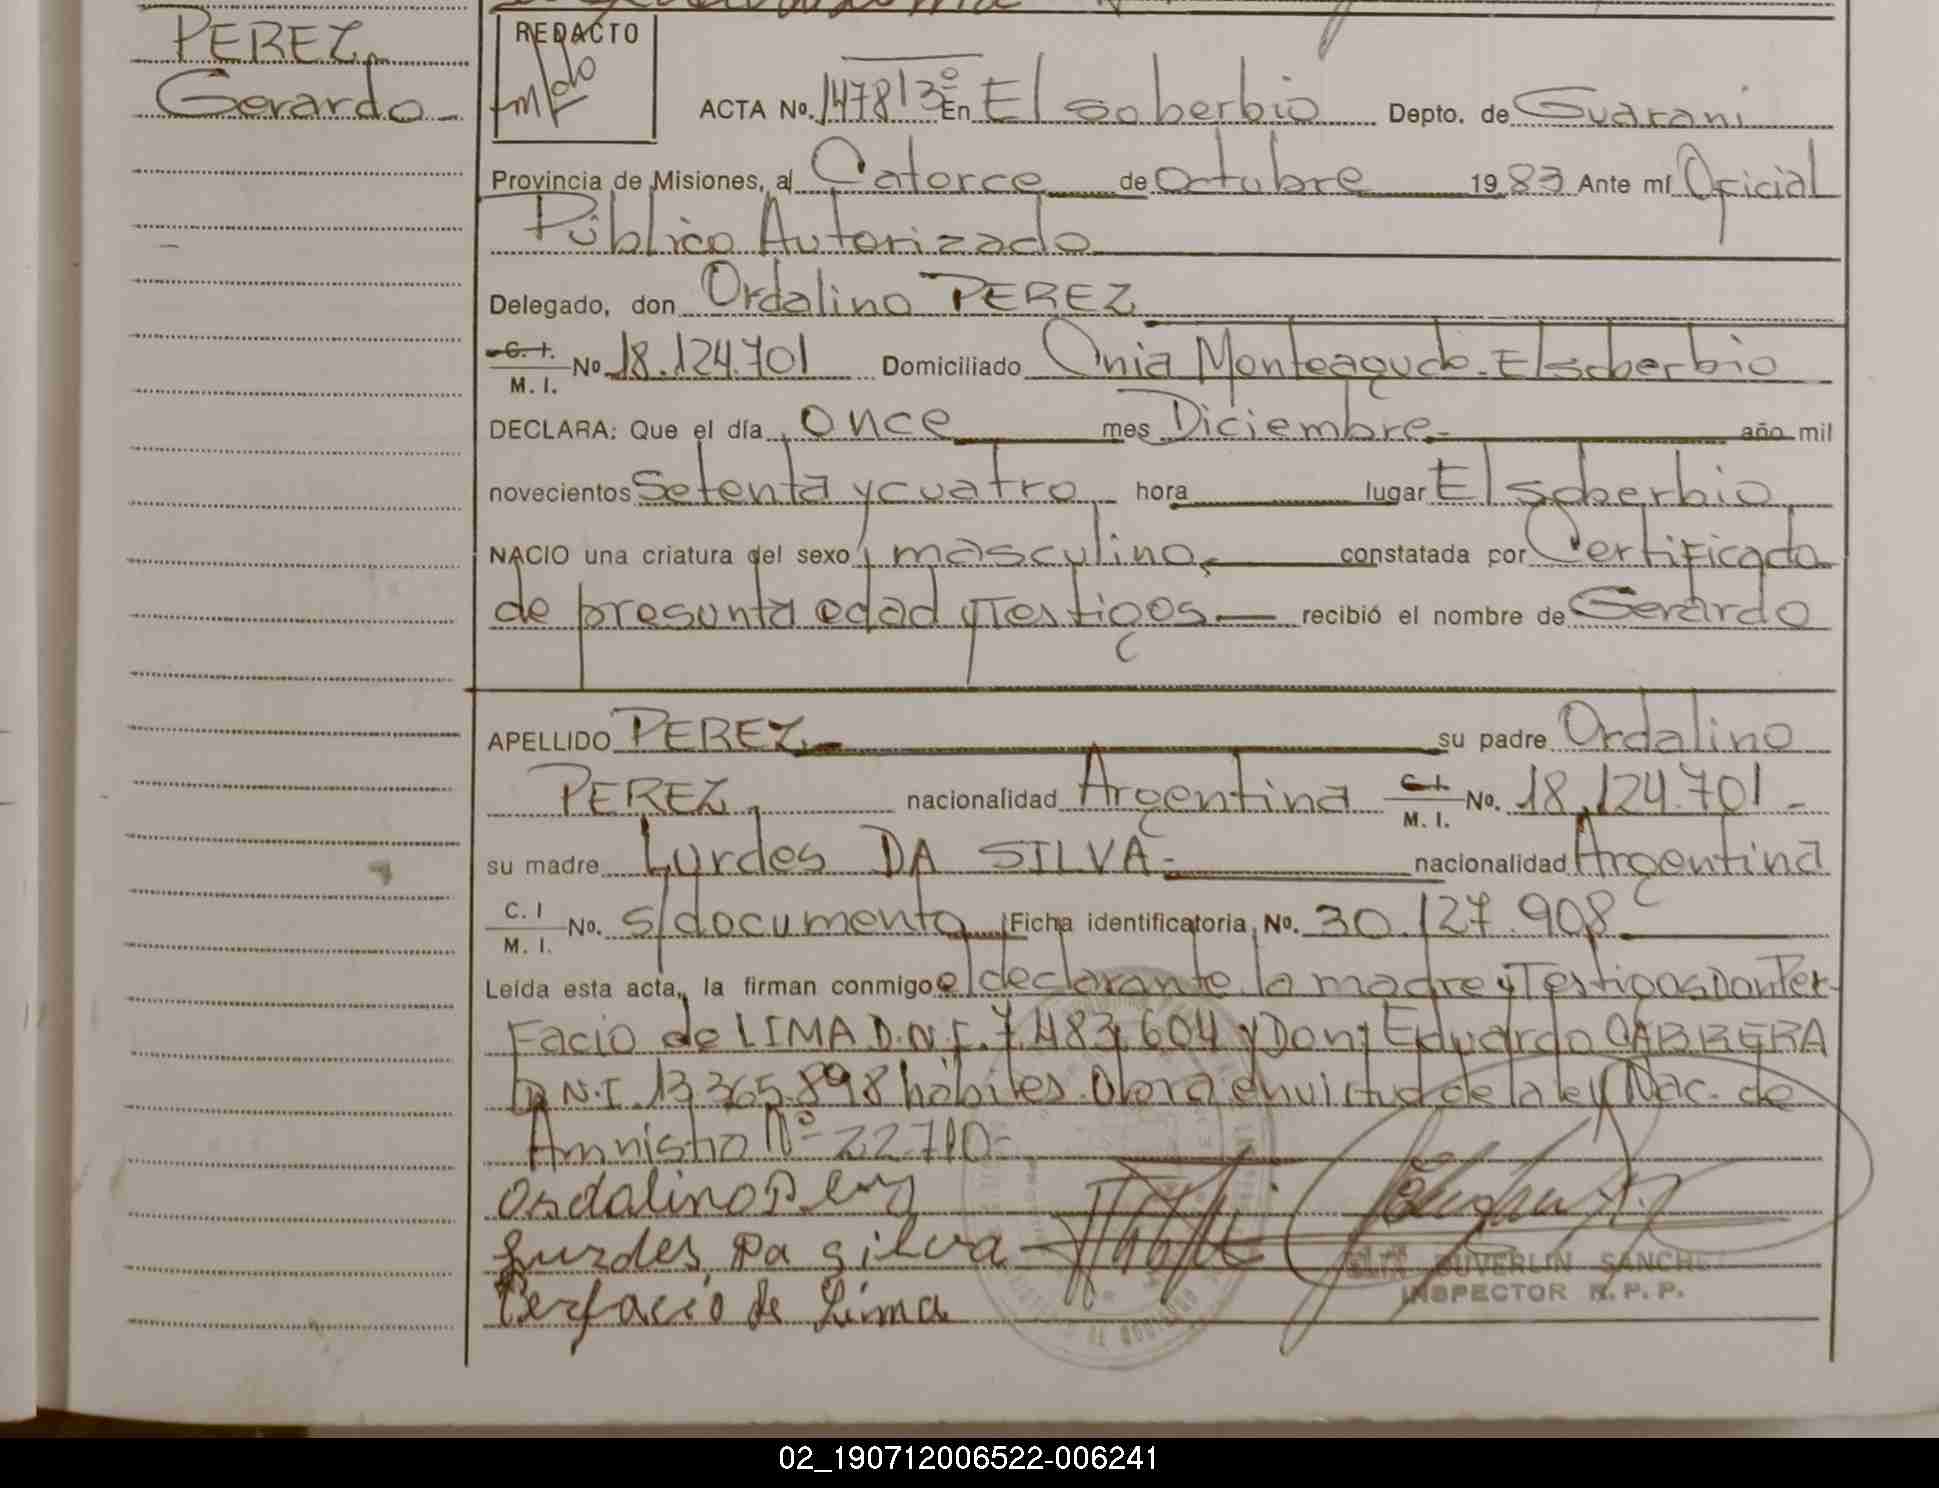 PEREZ
Gerardo
REDACTO
ACTA No. 1478|3º En El soberbio Depto. de Guarani
Provincia de Misiones, al Catorce de octubre 19 83 Ante mí Oficial
Público Autorizado
Delegado, don Ordalino PEREZ
C. I. M. I. No 18.124.701 Domiciliado Cnia Monteagudo. El soberbio
DECLARA: Que el día once mes Diciembre año mil
novecientos Setenta y cuatro hora lugar El soberbio
NACIO una criatura del sexo masculino constatada por Certificado
de presunta edad y Testigos recibió el nombre de Gerardo
APELLIDO PEREZ su padre Ordalino
PEREZ nacionalidad Argentina C. I. M. I. No. 18.124.701
su madre Lurdes DA SILVA nacionalidad Argentina
C. I M. I. No. s/documento Ficha identificatoria, No. 30.127.908
Leída esta acta, la firman conmigo el declarante la madre y Testigos Don Per
Facio de LIMA D.N.I. 7.483.604 y Don Eduardo CABRERA
D.N.I. 13.365.898 hábiles. Obra en virtud de la ley Nac. de
Amnistia Nº 22.710-
Osdalino Perez
Lurdes Da silva
Perfacio de Lima
DUVERLIN SANCHEZ
INSPECTOR R. P. P.
02_190712006522-006241